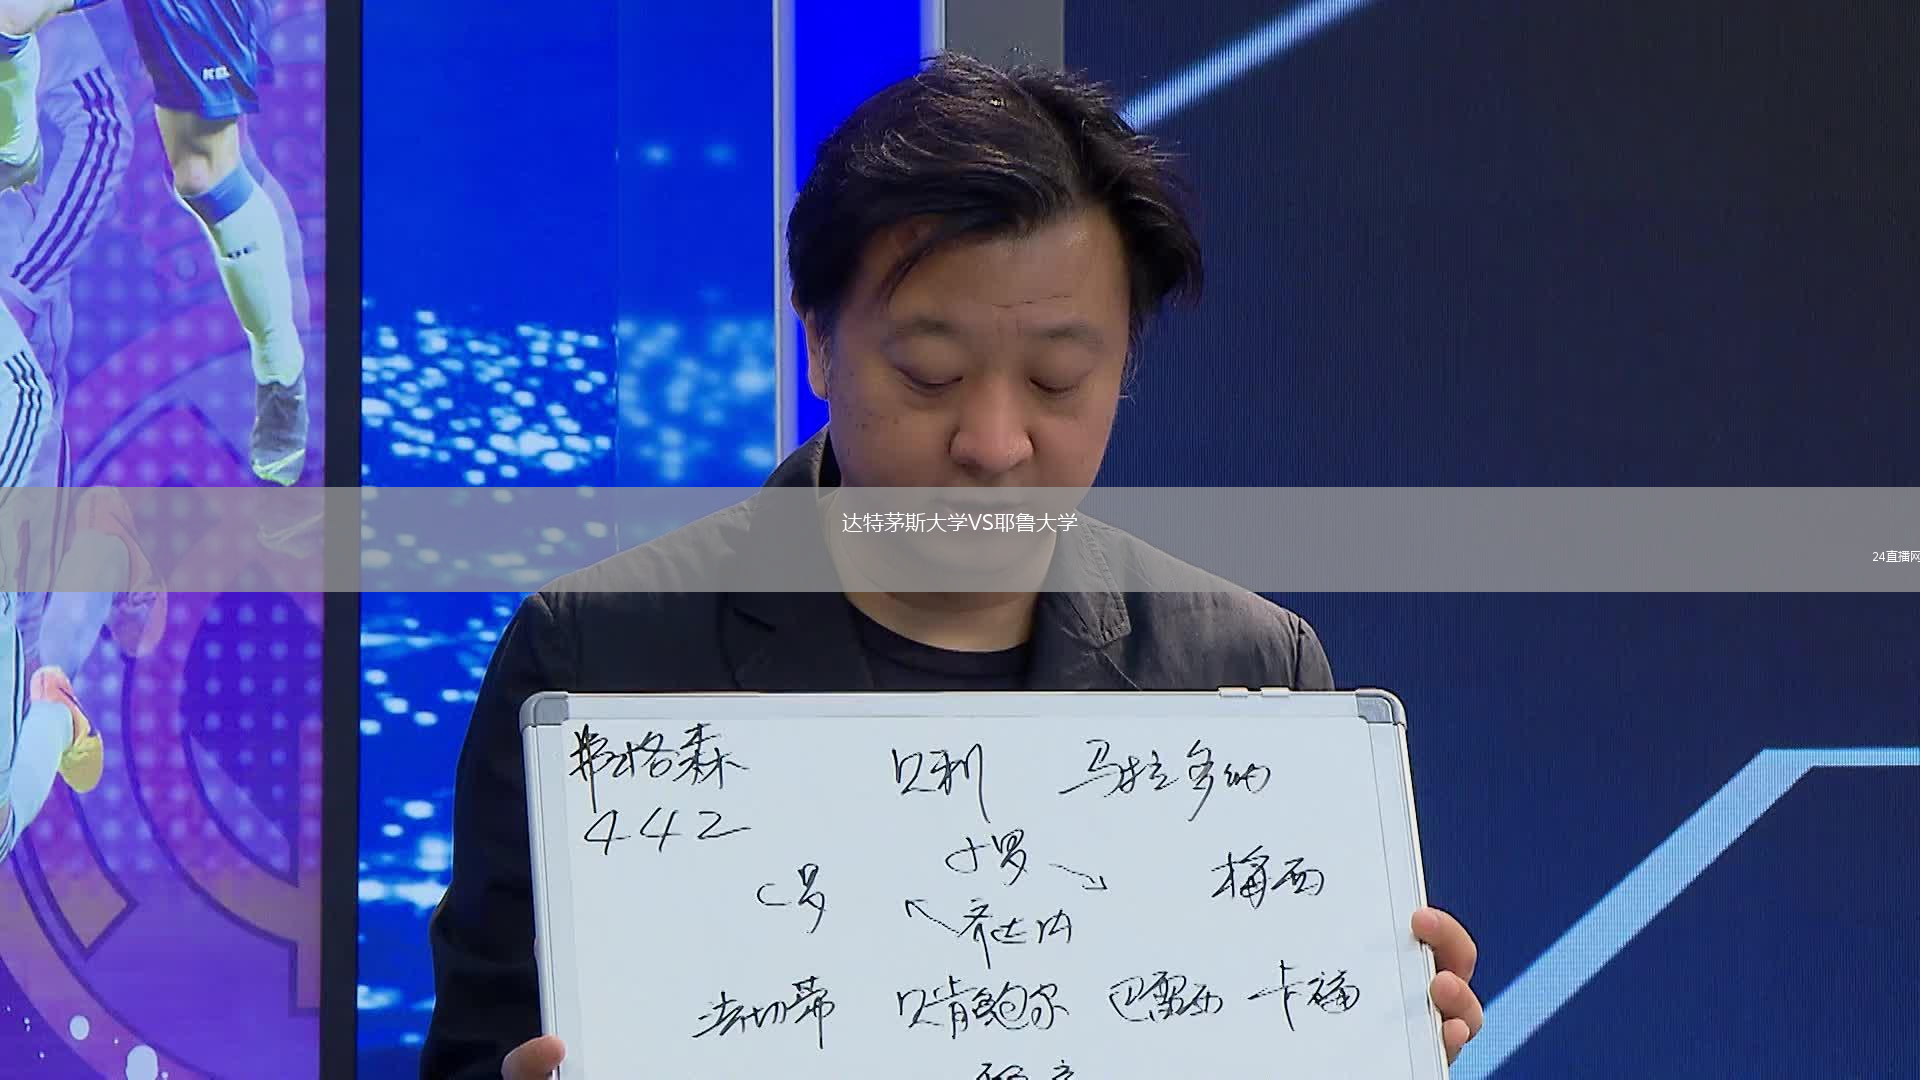 达特茅斯大学VS耶鲁大学
24直播网
弗格森 贝利 马拉多纳
442
小罗
C罗 梅西
齐达内
法切蒂 贝肯鲍尔 巴雷西 卡福